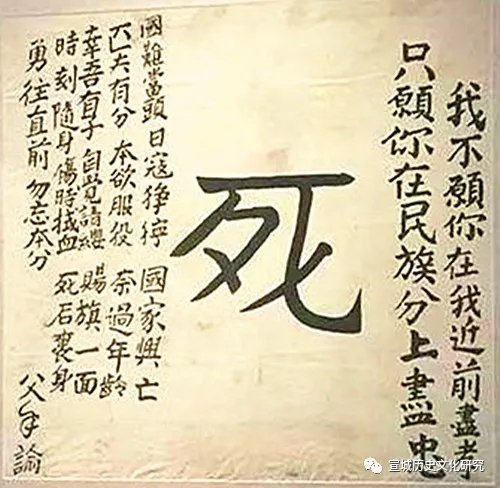 我不願你在我近前盡孝
只願你在民族分上盡忠
死
國難當頭 日寇猙獰 國家興亡
匹夫有分 本欲服役 奈過年齡
幸吾有子 自覺請纓 賜旗一面
時刻隨身 傷時拭血 死后裹身
勇往直前 勿忘本分
父手諭
宣城历史文化研究